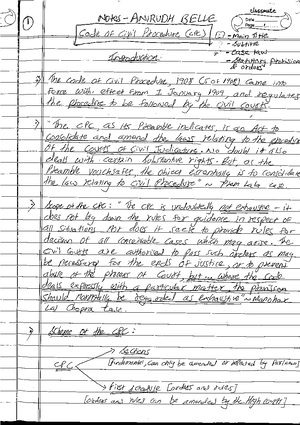 classmate
1
NOTES - ANIRUDH BELLE
Code of Civil Procedure (CPC)
- Main Title
- Subtitle
- Case law
- Statutory Provision & orders
Introduction:
The Code of Civil Procedure, 1908 (5 of 1908) came into
force with effect from 1 January 1909, and regulates
the procedure to be followed by the civil courts.
"The CPC, as its Preamble indicates, is an Act to
consolidate and amend the laws relating to the procedure
of the Courts of Civil Judicature. No doubt it also
deals with certain substantive rights. But as the
Preamble vouchsafes, the object essentially is to consolidate
the law relating to Civil Procedure" ~ Prem Lala case.
Scope of the CPC: "The CPC is undoubtedly not exhaustive - it
does not lay down the rules for guidance in respect of
all situations nor does it seek to provide rules for
decision of all conceivable cases which may arise. The
civil courts are authorised to pass such orders as may
be necessary for the ends of justice, or to prevent
abuse of the process of court, but where the Code
deals expressly with a particular matter, the provision
should normally be regarded as exhaustive" ~ Manohar
Lal Chopra Case.
Scheme of the CPC:
Sections
CPC
[Fundamental, can only be amended or repealed by Parliament]
First Schedule [orders and rules]
[orders and rules can be amended by the High Court]